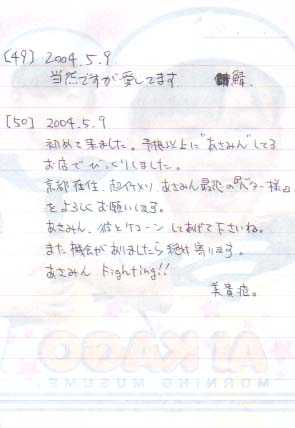 [49] 2004.5.9
当然ですが愛してます 鱗.
[50] 2004.5.9
初めて来ました。予想以上に"あさみん"してる
お店でびっくりしました。
京都在住、超イケメン あさみん最恐の
をよろしくお願いします。
あさみん、彼と してあげて下さいね。
また機会がありましたら絶対寄ります。
あさみん Fighting!!
美貴
AI KAGO
MORNING MUSUME.